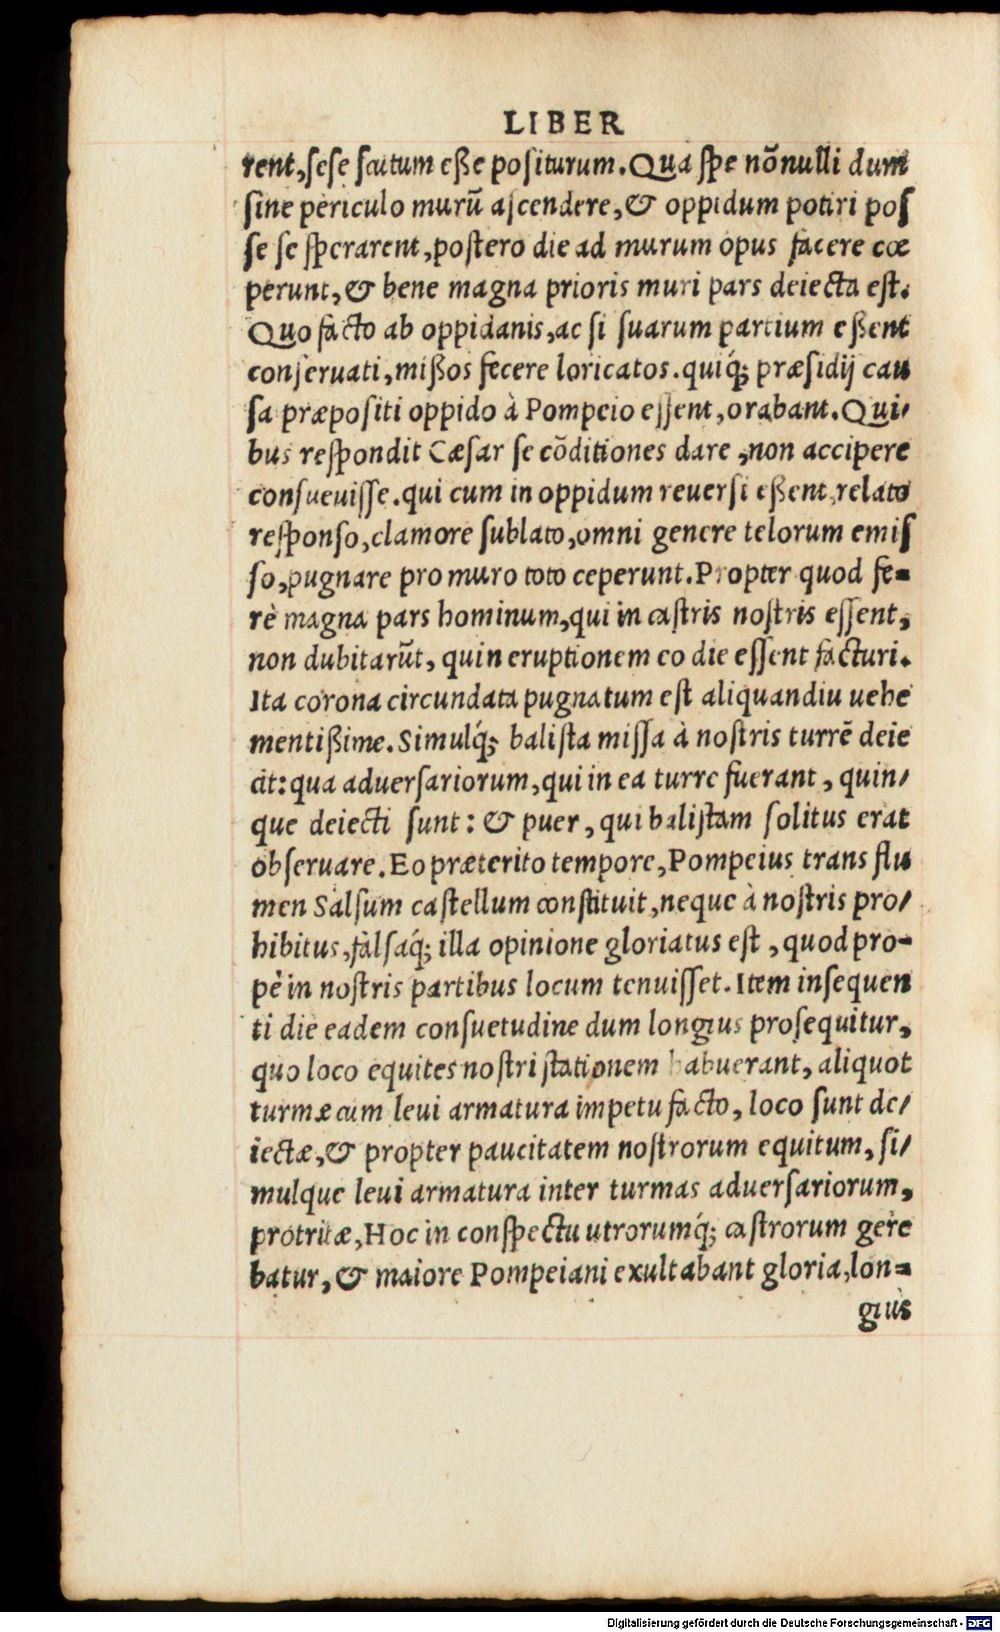 LIBER
rent, sese scutum eße positurum. Qua spe nõnulli dum
sine periculo murũ ascendere, & oppidum potiri pos
se se sperarent, postero die ad murum opus facere cœ
perunt, & bene magna prioris muri pars deiecta est.
Quo facto ab oppidanis, ac si suarum partium eßent
conseruati, mißos fecere loricatos. quiq́; præsidij cau
sa præpositi oppido à Pompeio essent, orabant. Qui/
bus respondit Cæsar se cõditiones dare, non accipere
consueuisse. qui cum in oppidum reuersi eßent, relato
responso, clamore sublato, omni genere telorum emis
so, pugnare pro muro toto ceperunt. Propter quod fe-
rè magna pars hominum, qui in castris nostris essent,
non dubitarũt, quin eruptionem eo die essent facturi.
Ita corona circundata pugnatum est aliquandiu uehe
mentißime. Simulq́; balista missa à nostris turrẽ deie
cit: qua aduersariorum, qui in ea turre fuerant, quin/
que deiecti sunt: & puer, qui balistam solitus erat
obseruare. Eo præterito tempore, Pompeius trans flu
men Salsum castellum constituit, neque à nostris pro/
hibitus, falsaq́; illa opinione gloriatus est, quod pro-
pè in nostris partibus locum tenuisset. Item insequen
ti die eadem consuetudine dum longius prosequitur,
quo loco equites nostri stationem habuerant, aliquot
turmæ cum leui armatura impetu facto, loco sunt de/
iectæ, & propter paucitatem nostrorum equitum, si/
mulque leui armatura inter turmas aduersariorum,
protritæ, Hoc in conspectu utrorumq́; castrorum gere
batur, & maiore Pompeiani exultabant gloria, lon-
gius
Digitalisierung gefördert durch die Deutsche Forschungsgemeinschaft - DFG